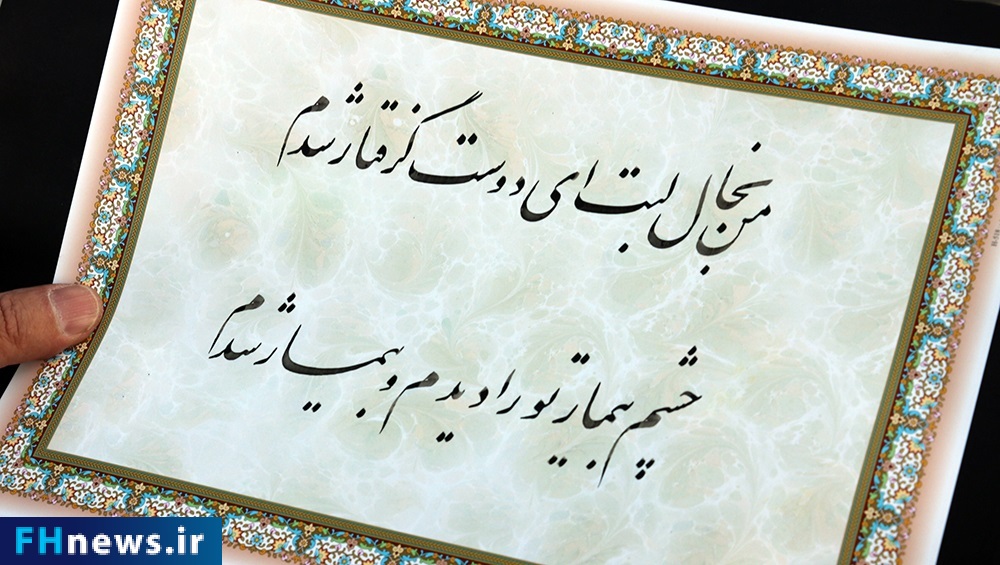 من بخال لبت ای دوست گرفتار شدم
چشم بیمار تو را دیدم و بیمار شدم
FHnews.ir